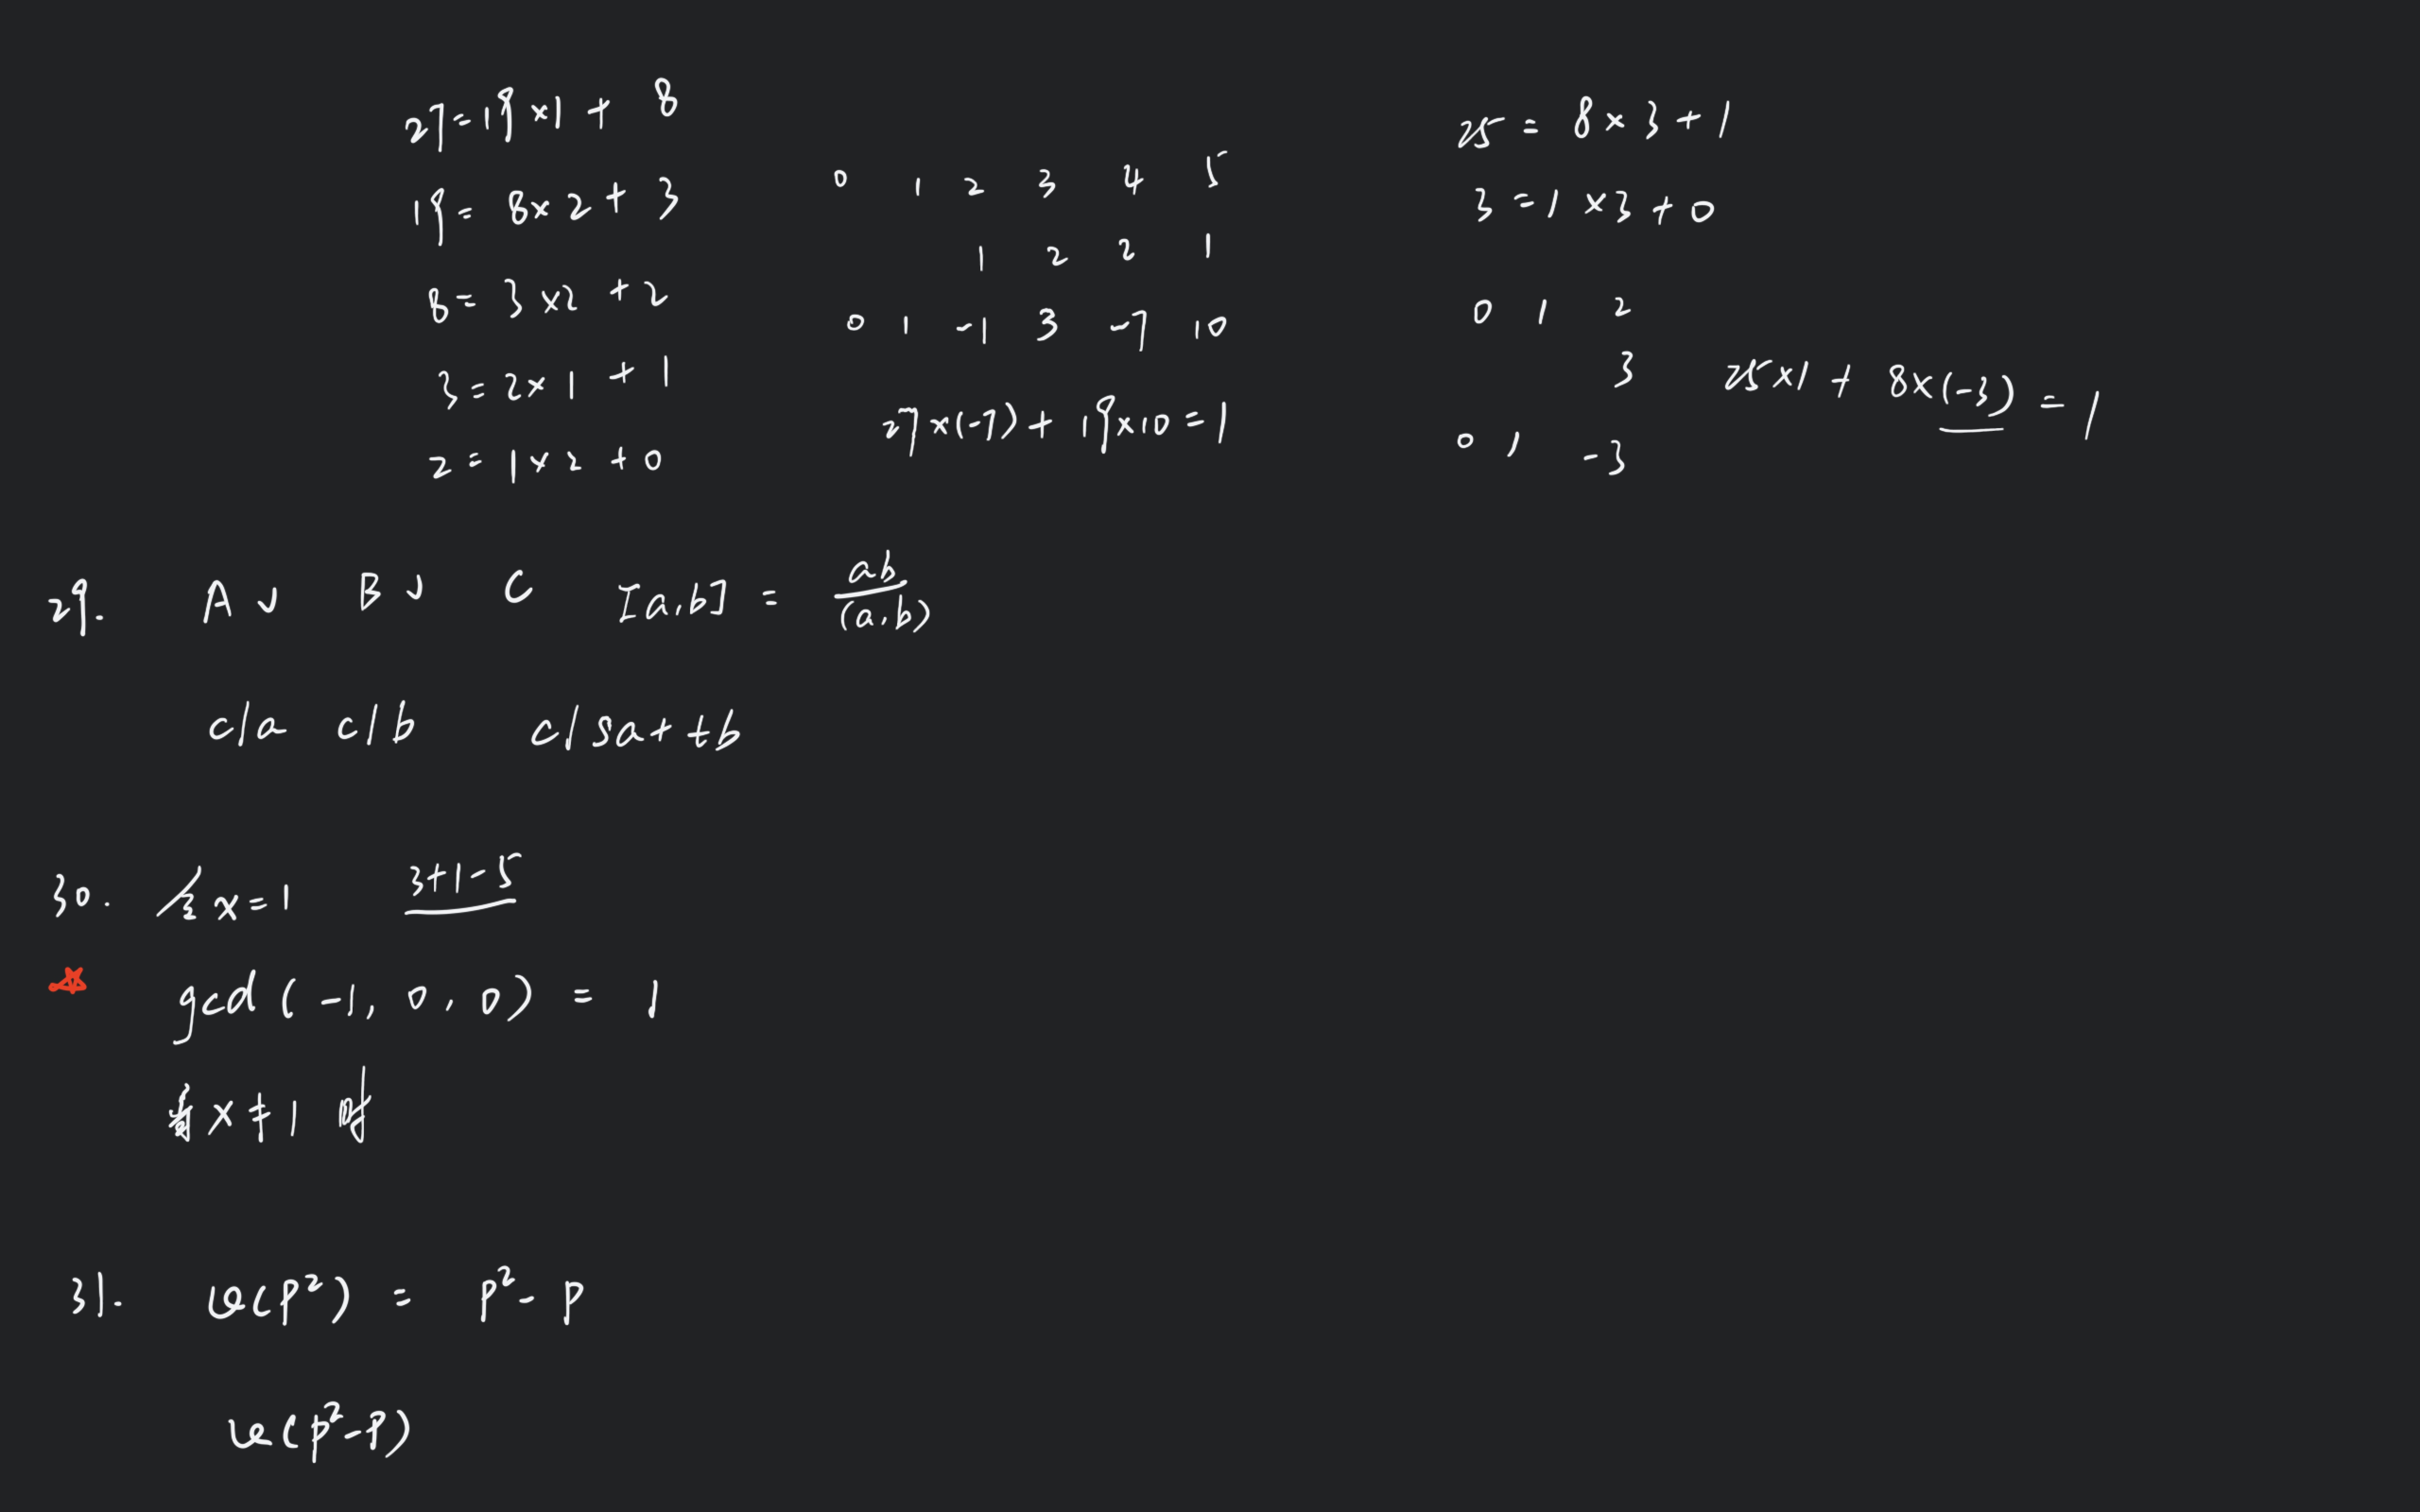 27=19×1+8
19=8×2+3
8=3×2+2
3=2×1+1
2=1×2+0
0 1 2 3 4 5
1 2 2 1
0 1 -1 3 -7 10
27×(-7)+19×10=1
25=8×3+1
3=1×3+0
0 1 2
3
0 1 -3
25×1+8×(-3)=1
29. A√ B√ C [a,b]=ab/(a,b)
c|a c|b c|sa+tb
30. 令x=1 3+1-5
gcd(-1,0,0)=1
x≠1时
31. φ(p²)=p²-p
φ(p²-p)